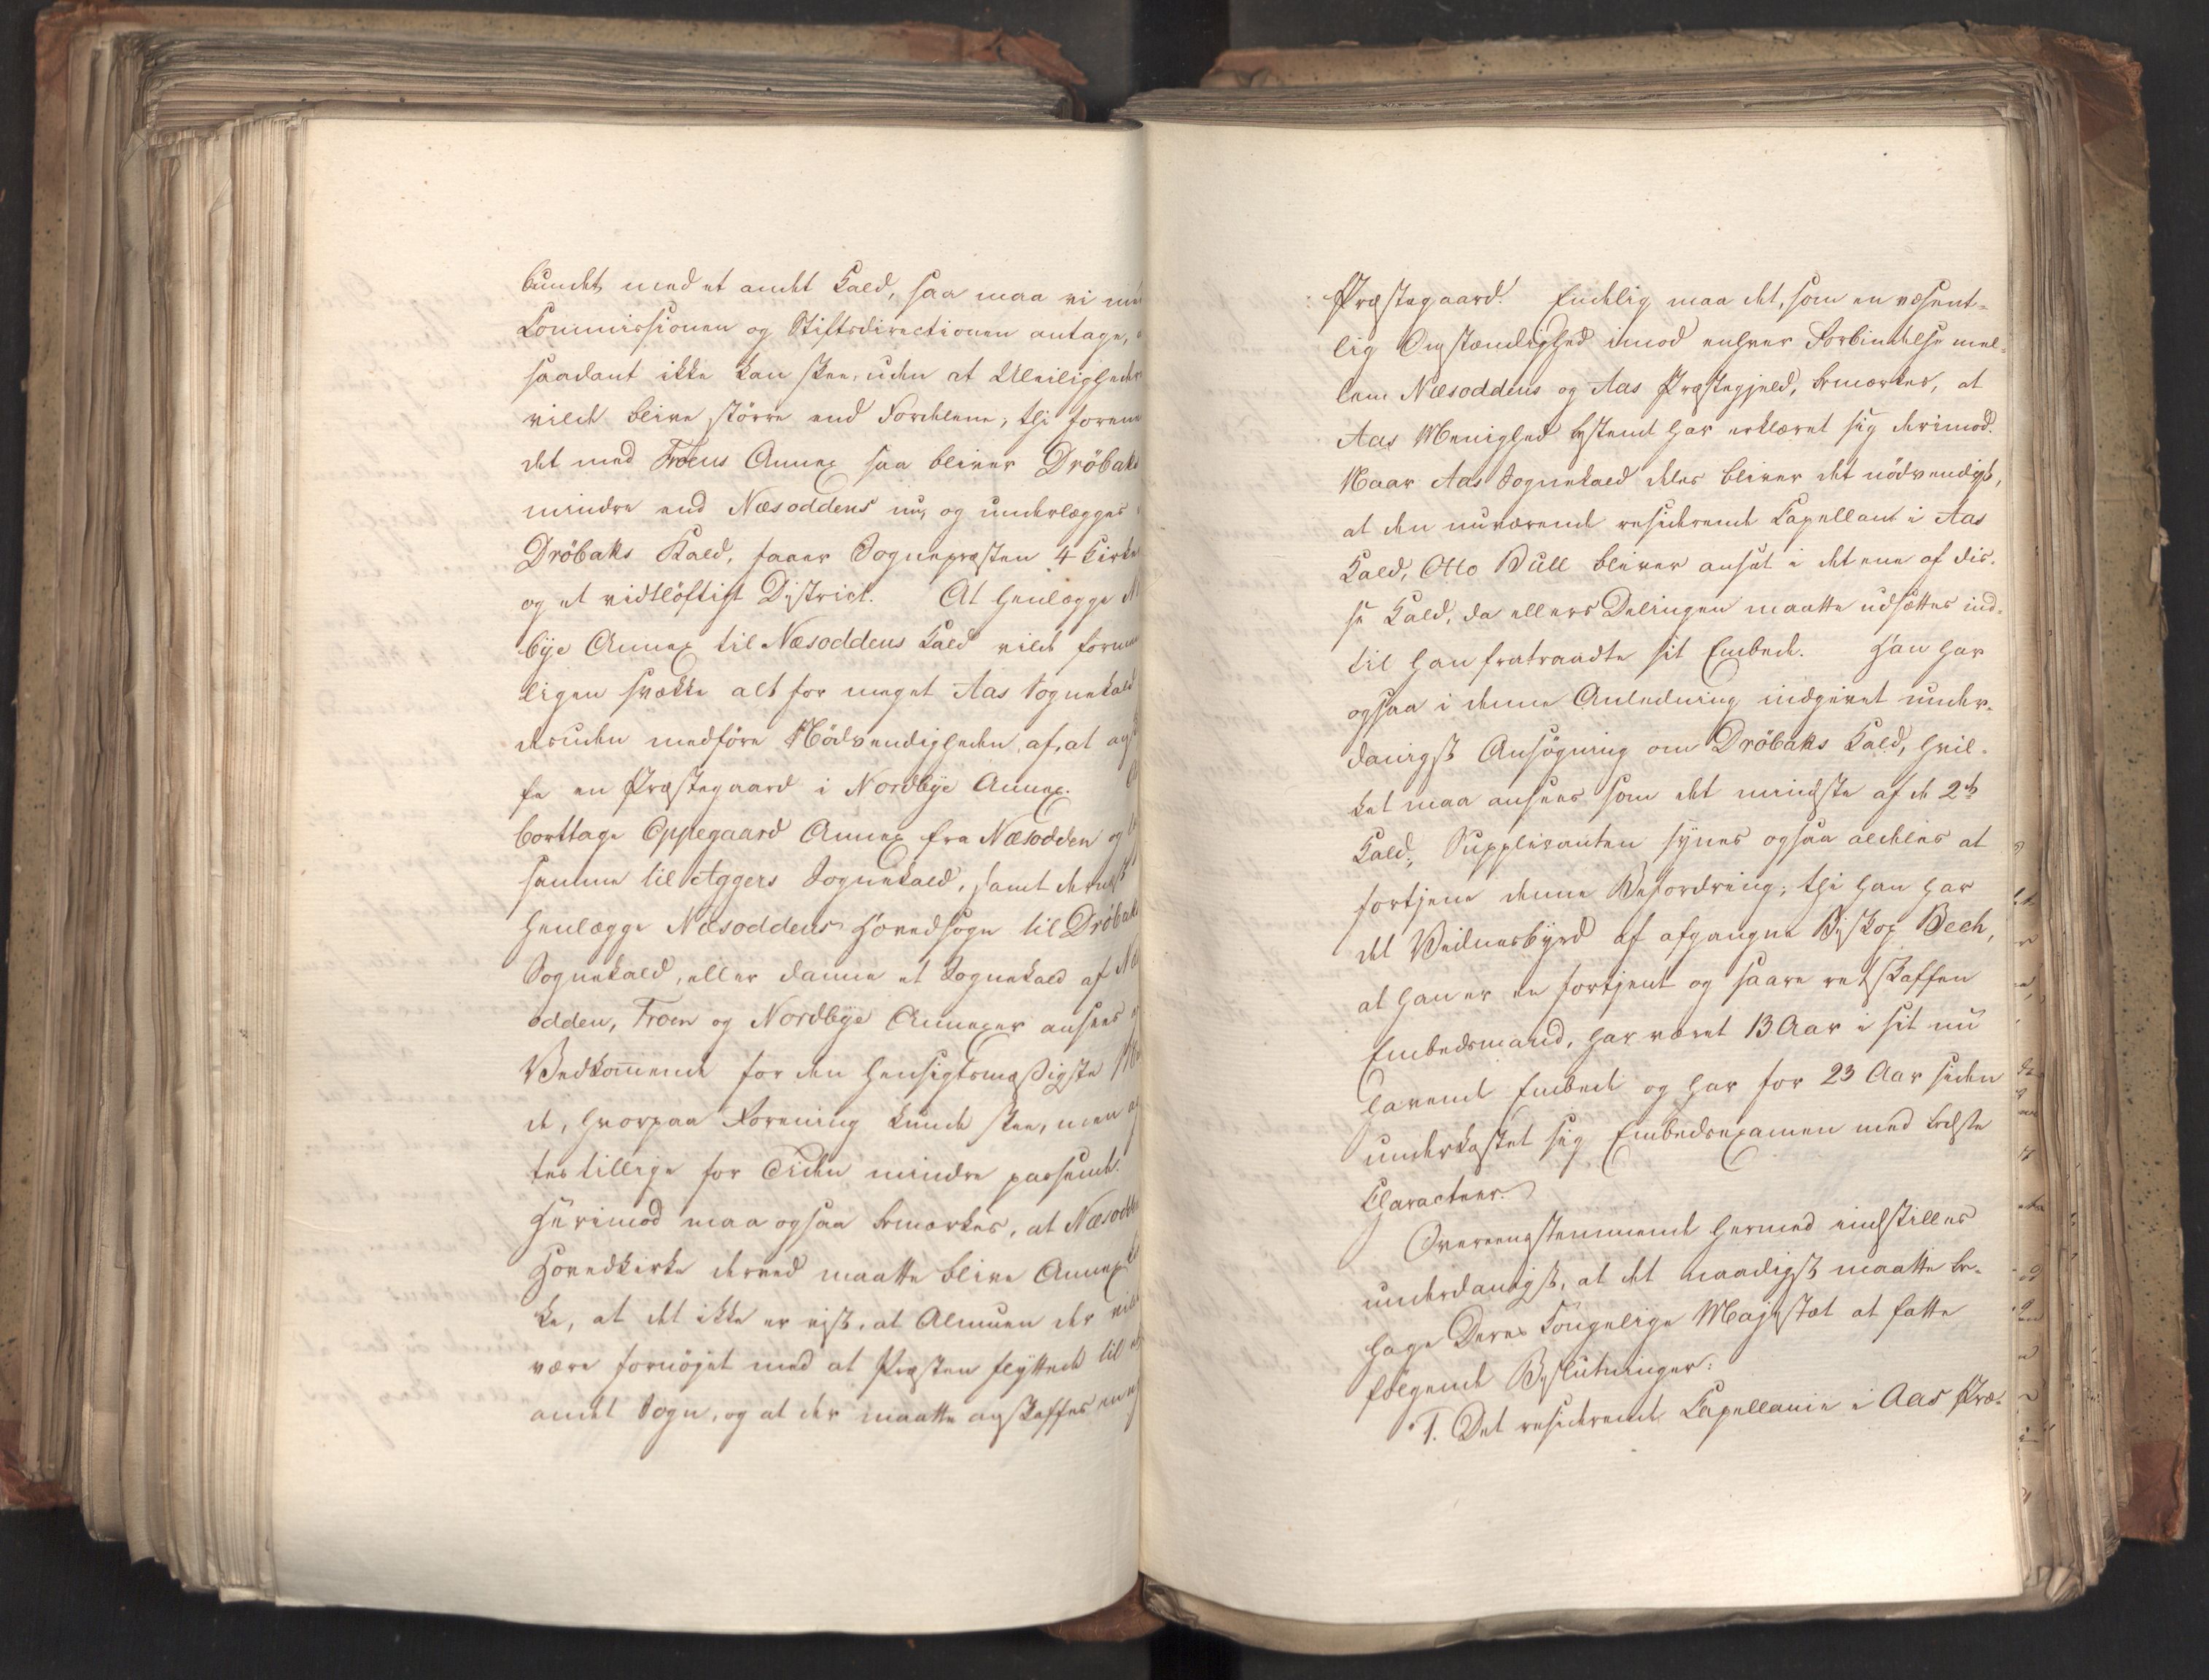 bundet med et andet Kald, saa maa vi med
Commissionen og Stiftsdirectionen antage,
saadant ikke kan skee, uden at Uleiligheden
vilde blive större end Fordelene, thi foreene
det med Froens Annex saa bliver Dröbaks
mindre end Næsoddens nu, og underlægges
Dröbaks Kald, faaer Sognepræsten 4 Kirker
og et vidtlöftigt District. At henlægge
bye Annex til Næsoddens Kald vilde formee
ligen svække alt for meget Aas Sognekald
desuden medföre Nödvendigheden af, at
fe en Præstegaard i Nordbye Annex.
borttage Oppegaard Annex fra Næsodden og
samme til Aggers Sognekald, samt dernæst
henlægge Næsoddens Hovedsogn til Dröbaks
Sognekald, eller danne et Sognekald af Næs
odden, Froen og Nordbye Annexer ansees
Vedkommende for den hensigtsmæssigste
de, hvorpaa Forening kunde skee, men
tes tillige for Tiden mindre passende.
Herimod maa ogsaa bemærkes, at Næsodde
Hovedkirke derved maatte blive Annex
ke, at det ikke er vist, at Almuen der vilde
være fornöjet med at Præsten flyttede til
andet Sogn, og at der maatte anskaffes en
Præstegaard. Endelig maa det, som en væsent-
lig Omstændighed imod enhver Forbindelse mel-
lem Næsoddens og Aas Præstegjeld, bemærkes, at
Aas Menighed bestemt har erklæret sig derimod.
Naar Aas Sognekald deles bliver det nödvendigt,
at den nuværende residerende Capellan i Aas
Kald, Otto Bull bliver ansat i det ene af dis-
se Kald, da ellers Delingen maatte udsættes ind-
til han fratraadte sit Embede. Han har
ogsaa i denne Anledning indgivet under-
danigst Ansögning om Dröbaks Kald, hvil-
ket maa ansees som det mindste af de 2de
Kald; Supplicanten synes ogsaa aldeles at
fortjene denne Befordring; thi han har
det Vidnesbyrd af afgangne Biskop Bech,
at han er en fortjent og saare retskaffen
Embedsmand, har været 13 Aar i sit nu
havende Embede og har for 23 Aar siden
underkastet sig Embedsexamen med bedste
Characteer.
Overeensstemmende hermed indstilles
underdanigst, at det naadigst maatte be-
hage Deres Kongelige Majestæt at fatte
fölgende Beslutninger:
1. Det residerende Capellanie i Aas Præ-